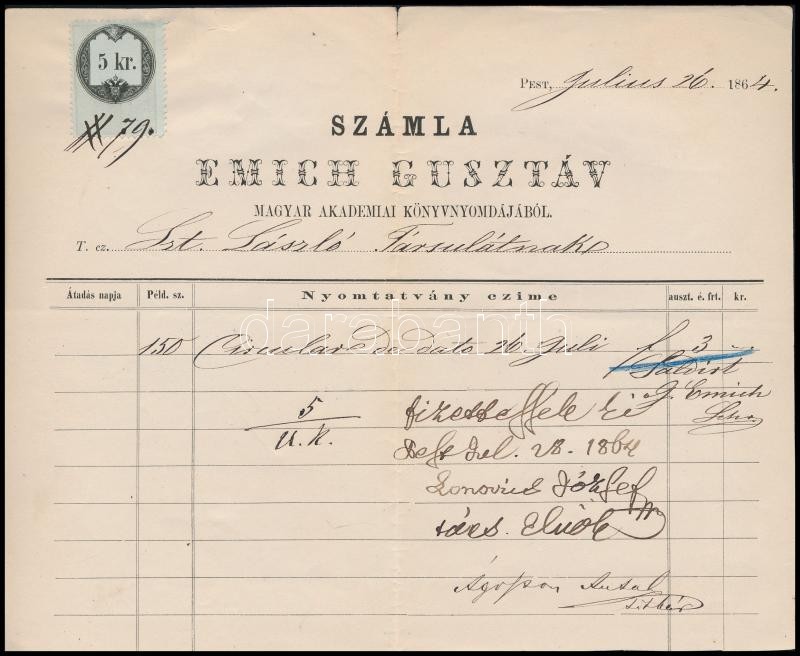 5 kr.
79.
PEST, Julius 26. 1864.
SZÁMLA
EMICH GUSZTÁV
MAGYAR AKADEMIAI KÖNYVNYOMDÁJÁBÓL.
T. cz. Szt. László Társulatnak
Átadás napja Péld. sz. Nyomtatvány czime auszt. é. frt. kr.
darabanth
150 Circular De dato 26 Juli f 3 --
Saldirt
G. Emich
5 fizettessék ki
U. K. Pest Jul. 28. 1864
Lonovics József
társ. Elnök
Antal